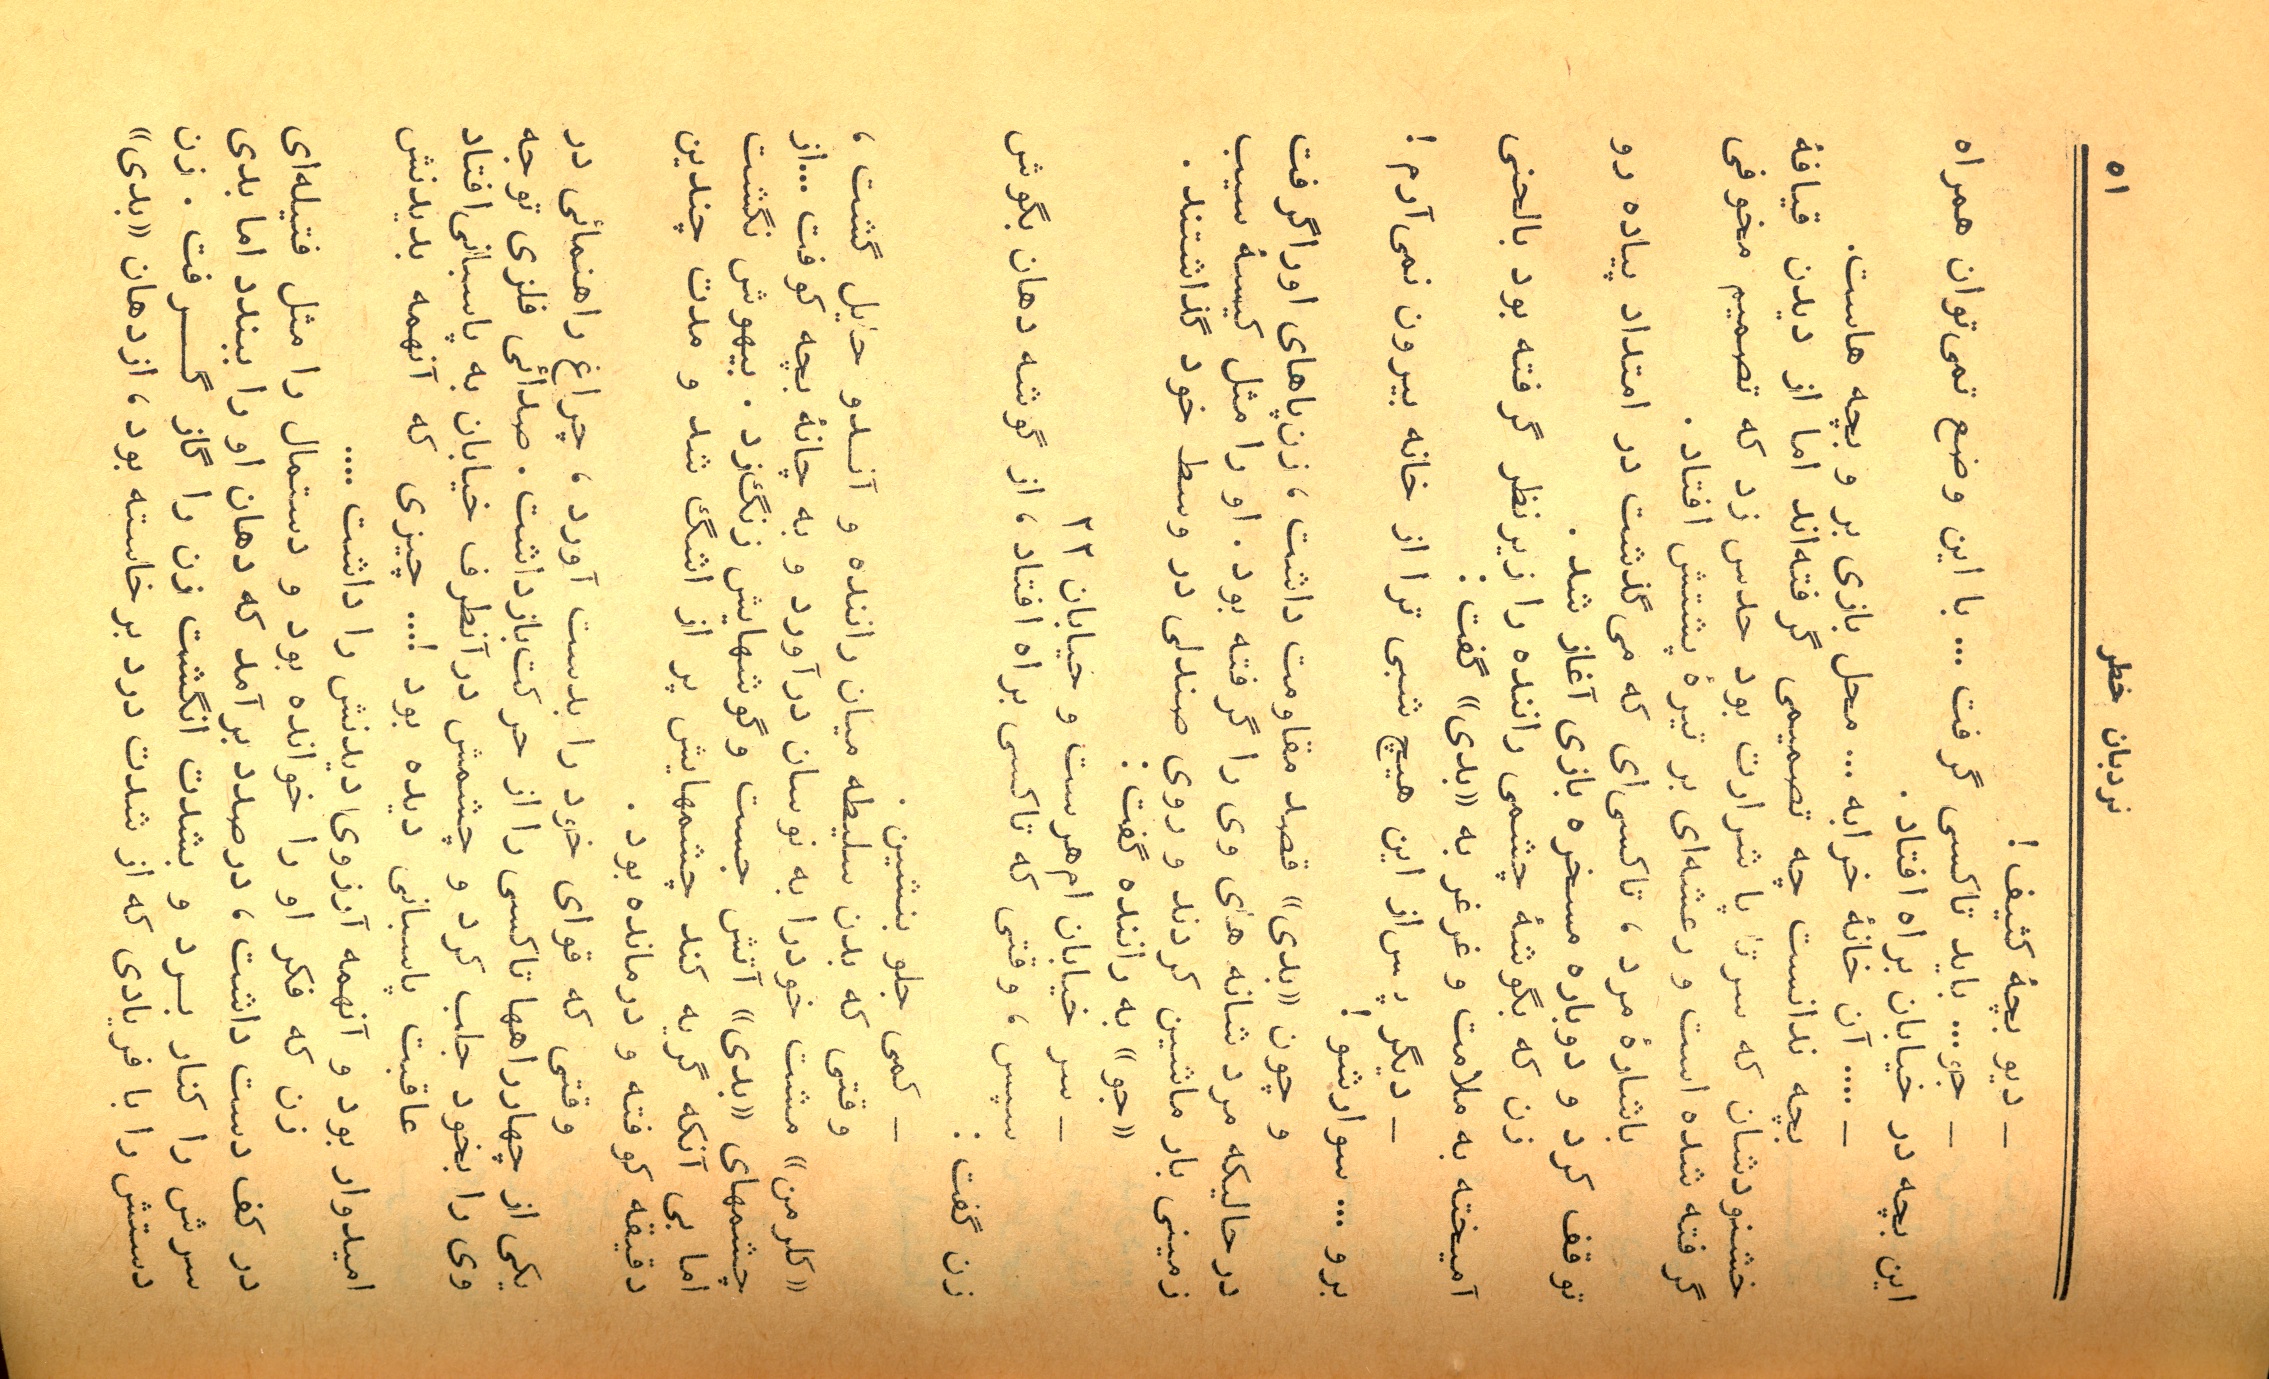 ۵۱ نردبان خطر
– دیو بچهٔ کثیف !
– جو... باید تاکسی گرفت ... با این وضع نمی‌توان همراه
این بچه در خیابان براه افتاد .
– .... آن خانهٔ خرابه ... محل بازی بر و بچه هاست.
بچه ندانست چه تصمیمی گرفته‌اند اما از دیدن قیافهٔ
خشنودشان که سرتا پا شرارت بود حدس زد که تصمیم مخوفی
گرفته شده است و رعشه‌ای بر تیرهٔ پشتش افتاد .
باشارهٔ مرد ، تاکسی‌ای که می‌گذشت در امتداد پیاده رو
توقف کرد و دوباره مسخره بازی آغاز شد .
زن که بگوشهٔ چشمی راننده را زیرنظر گرفته بود بالحنی
آمیخته به ملامت و غرغر به «بدی» گفت :
– دیگر پس‌از این هیچ شبی ترا از خانه بیرون نمی‌آرم !
برو ... سوارشو !
و چون «بدی» قصد مقاومت داشت ، زن‌پاهای اوراگرفت
درحالیکه مرد شانه های وی را گرفته بود . او را مثل کیسهٔ سیب
زمینی بار ماشین کردند و روی صندلی در وسط خود گذاشتند .
«جو» به راننده گفت :
– سر خیابان ام‌هرست و خیابان ۲۲
سپس ، وقتی که تاکسی براه افتاد ، از گوشه دهان بگوش
زن گفت :
– کمی جلو بنشین .
وقتی که بدن سلیطه میان راننده و آندو حایل گشت ،
«کلرمن» مشت خودرا به نوسان درآورد و به چانهٔ بچه کوفت ...از
چشمهای «بدی» آتش جست وگوشهایش زنگ‌زد . بیهوش نگشت
اما بی آنکه گریه کند چشمهایش پر از اشگ شد و مدت چندین
دقیقه کوفته و درمانده بود .
وقتی که قوای خود را بدست آورد ، چراغ راهنمائی در
یکی‌از چهارراهها تاکسی را از حرکت‌بازداشت . صدائی فلزی توجه
وی را بخود جلب کرد و چشمش درآنطرف خیابان به پاسبانی‌افتاد
عاقبت پاسبانی دیده بود !... چیزی که آنهمه بدیدنش
امیدوار بود و آنهمه آرزوی دیدنش را داشت ....
زن که فکر او را خوانده بود و دستمال را مثل فتیله‌ای
در کف دست داشت ، درصدد برآمد که دهان او را ببندد اما بدی
سرش را کنار برد و بشدت انگشت زن را گاز گرفت . زن
دستش را با فریادی که از شدت درد برخاسته بود، ازدهان «بدی»